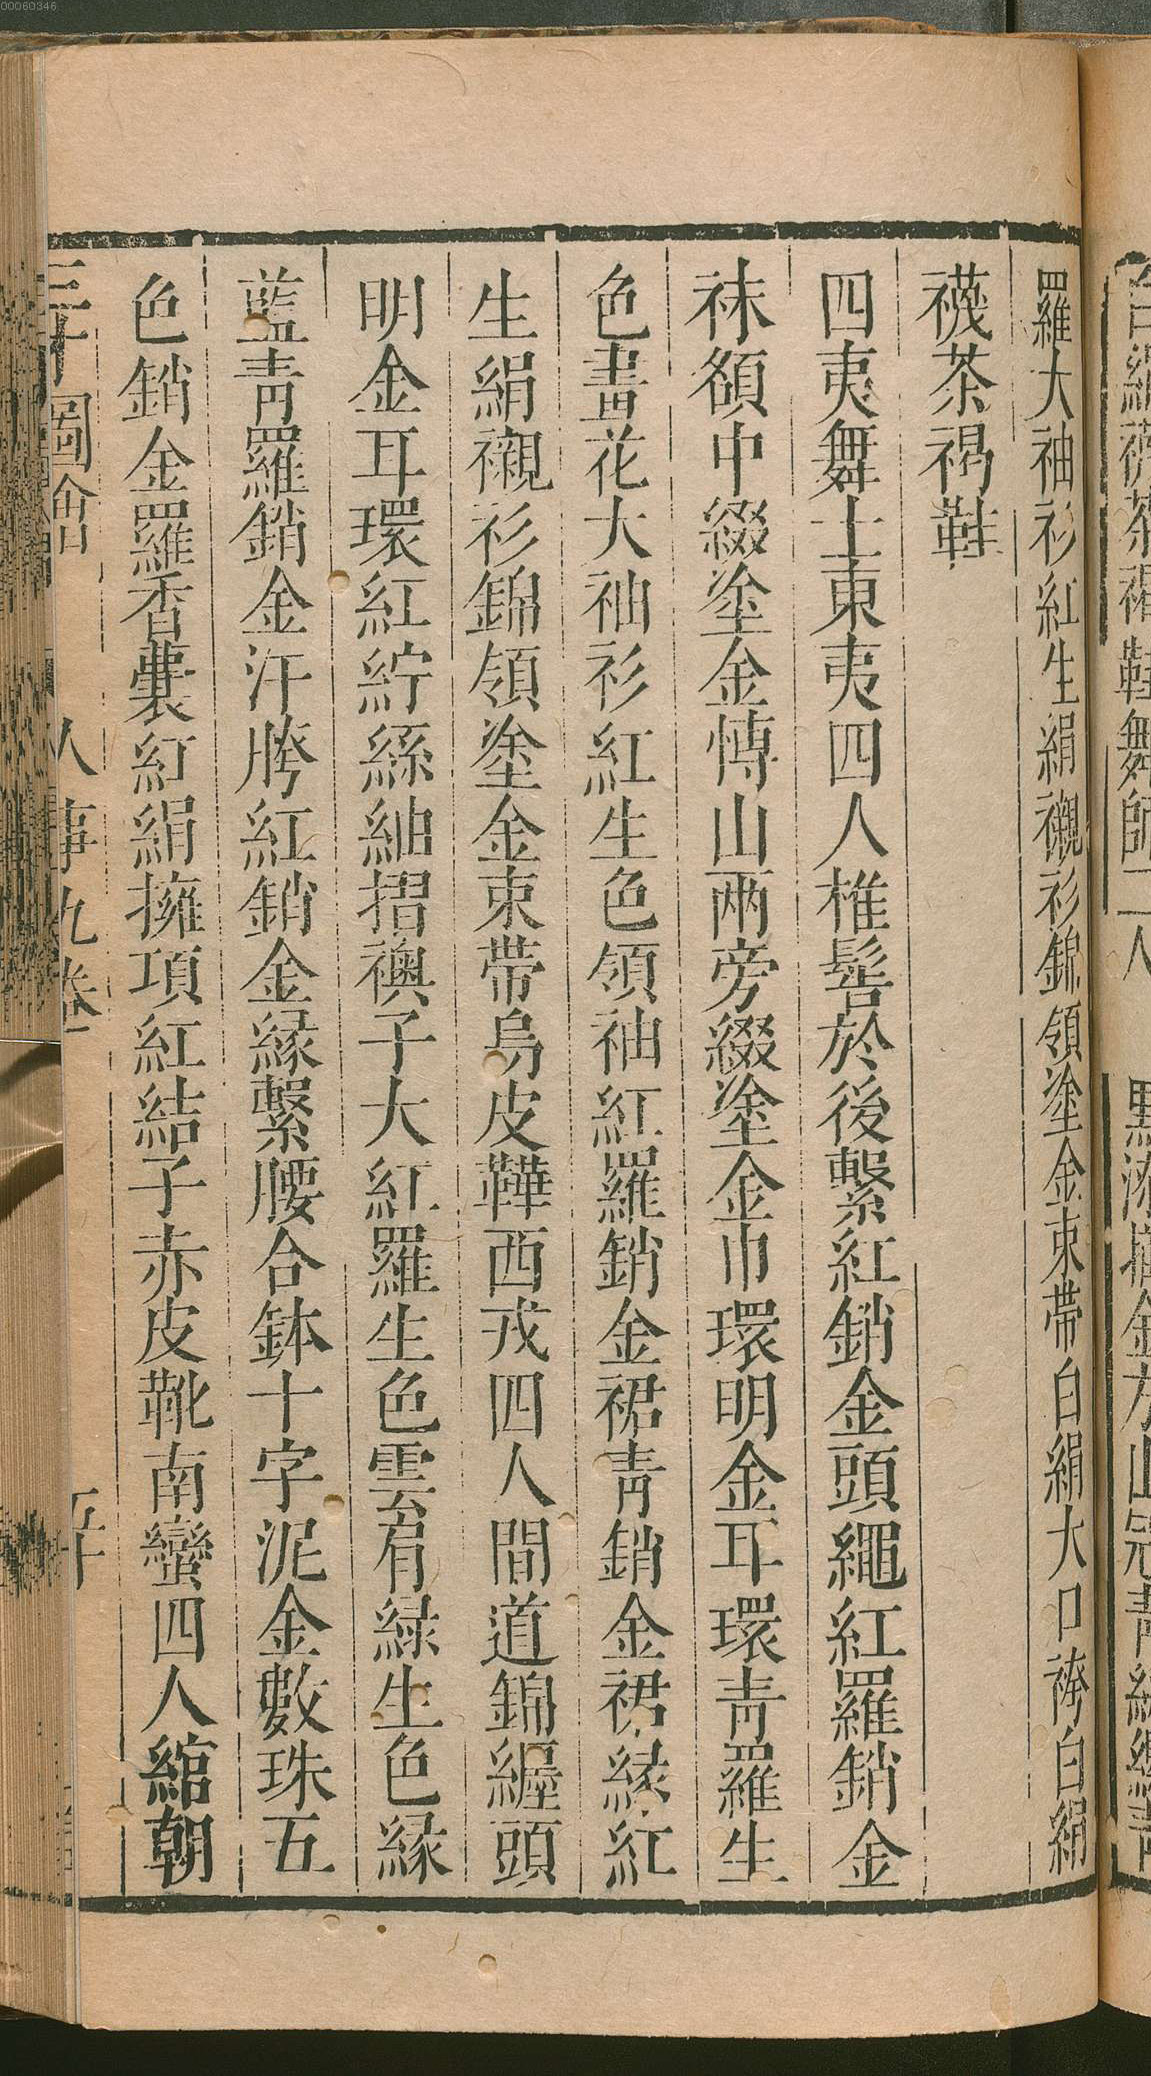 羅大袖衫紅生絹襯衫錦領塗金束帶白絹大口袴白絹
襪茶褐鞋
四夷舞士東夷四人椎髻於後繫紅銷金頭繩紅羅銷金
袜額中綴塗金愽山兩旁綴塗金巾環明金耳環靑羅生
色畫花大袖衫紅生色領袖紅羅銷金裙靑銷金裙緣紅
生絹襯衫錦領塗金束帶烏皮鞾西戎四人間道錦纏頭
明金耳環紅紵絲紬摺襖子大紅羅生色雲肩綠生色緣
藍靑羅銷金汗胯紅銷金緣繫腰合鉢十字泥金數珠五
色銷金羅香囊紅絹擁項紅結子赤皮靴南蠻四人綰朝
圖會 人事九卷
00060346